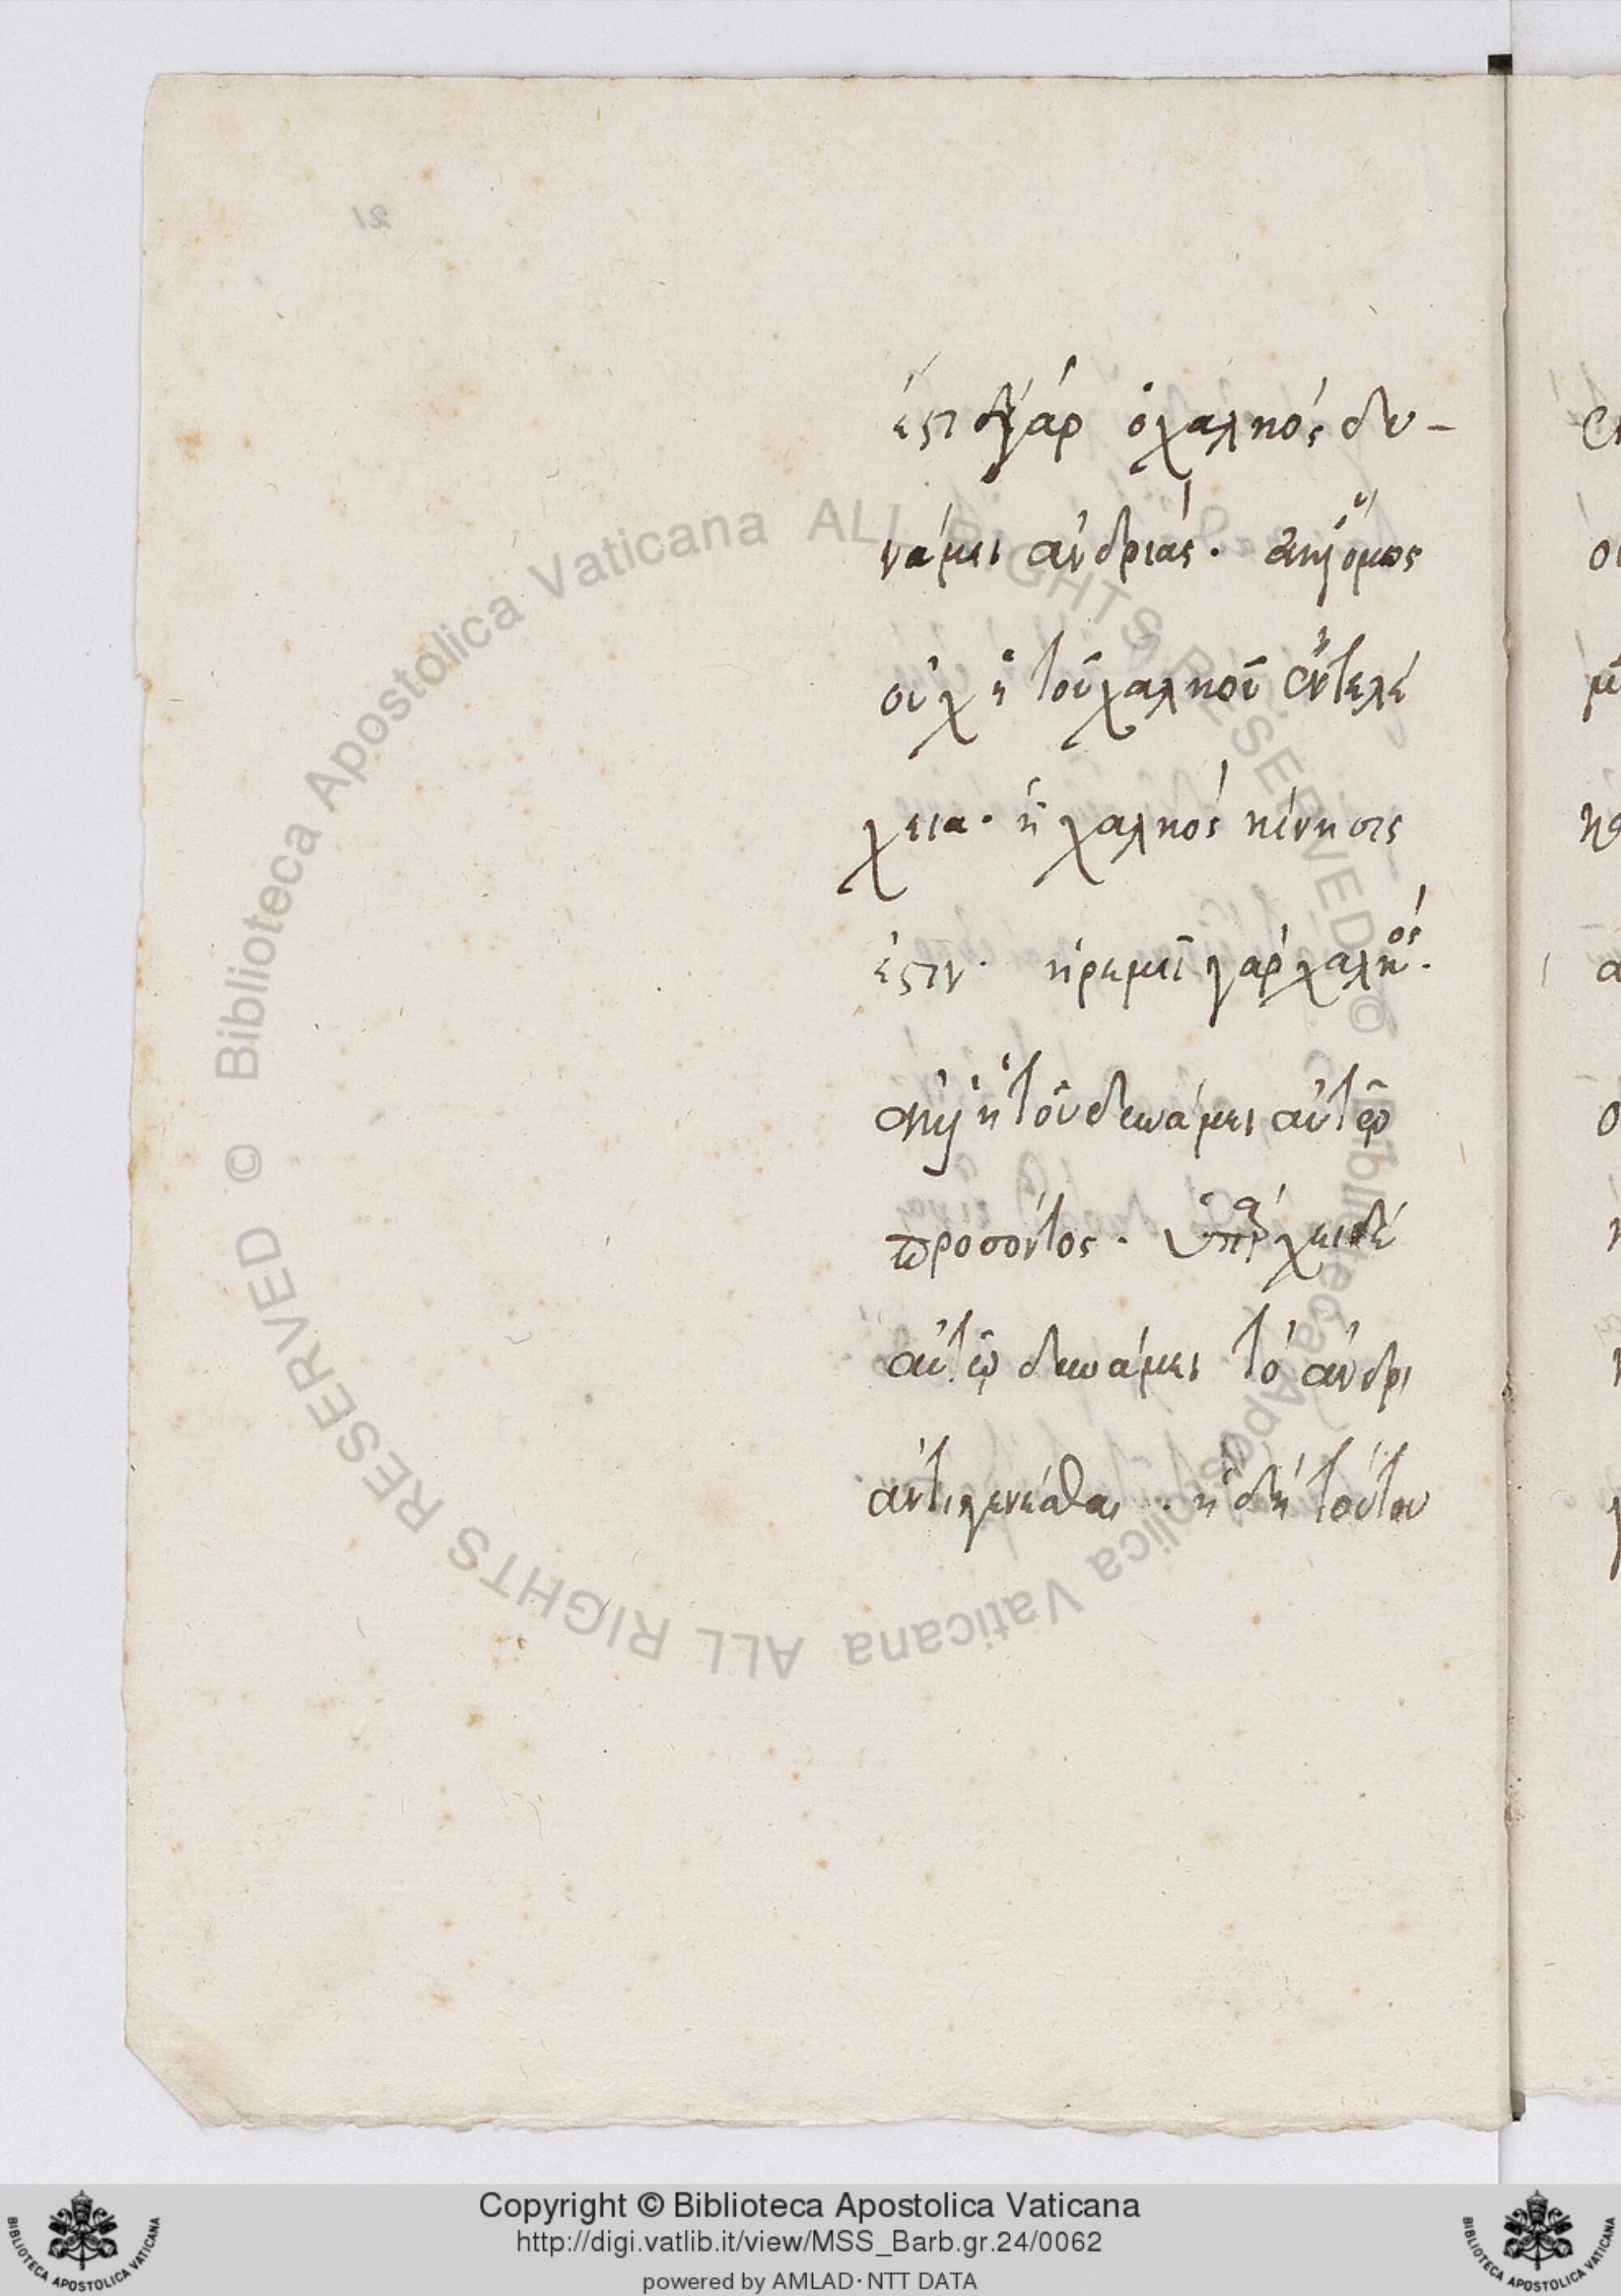 ἐστὶ γὰρ ὁ χαλκός δυ-
νάμει ἀνδριάς· ἀλλ' ὅμως
οὐχ ἡ τοῦ χαλκοῦ ἐντελέ
χεια· ᾗ χαλκός κίνησις
ἐστιν· ἠρεμεῖ γὰρ χαλκός·
ἀλλ' ἡ τοῦ δυνάμει αὐτῷ
προσόντος· ὑπάρχει δέ
αὐτῷ δυνάμει τό ἀνδρι
άντι γενέσθαι· ἡ δὴ τούτου
21
© Biblioteca Apostolica Vaticana ALL RIGHTS RESERVED © Biblioteca Apostolica Vaticana ALL RIGHTS RESERVED
Copyright © Biblioteca Apostolica Vaticana
http://digi.vatlib.it/view/MSS_Barb.gr.24/0062
powered by AMLAD · NTT DATA
BIBLIOTECA APOSTOLICA VATICANA
BIBLIOTECA APOSTOLICA VATICANA